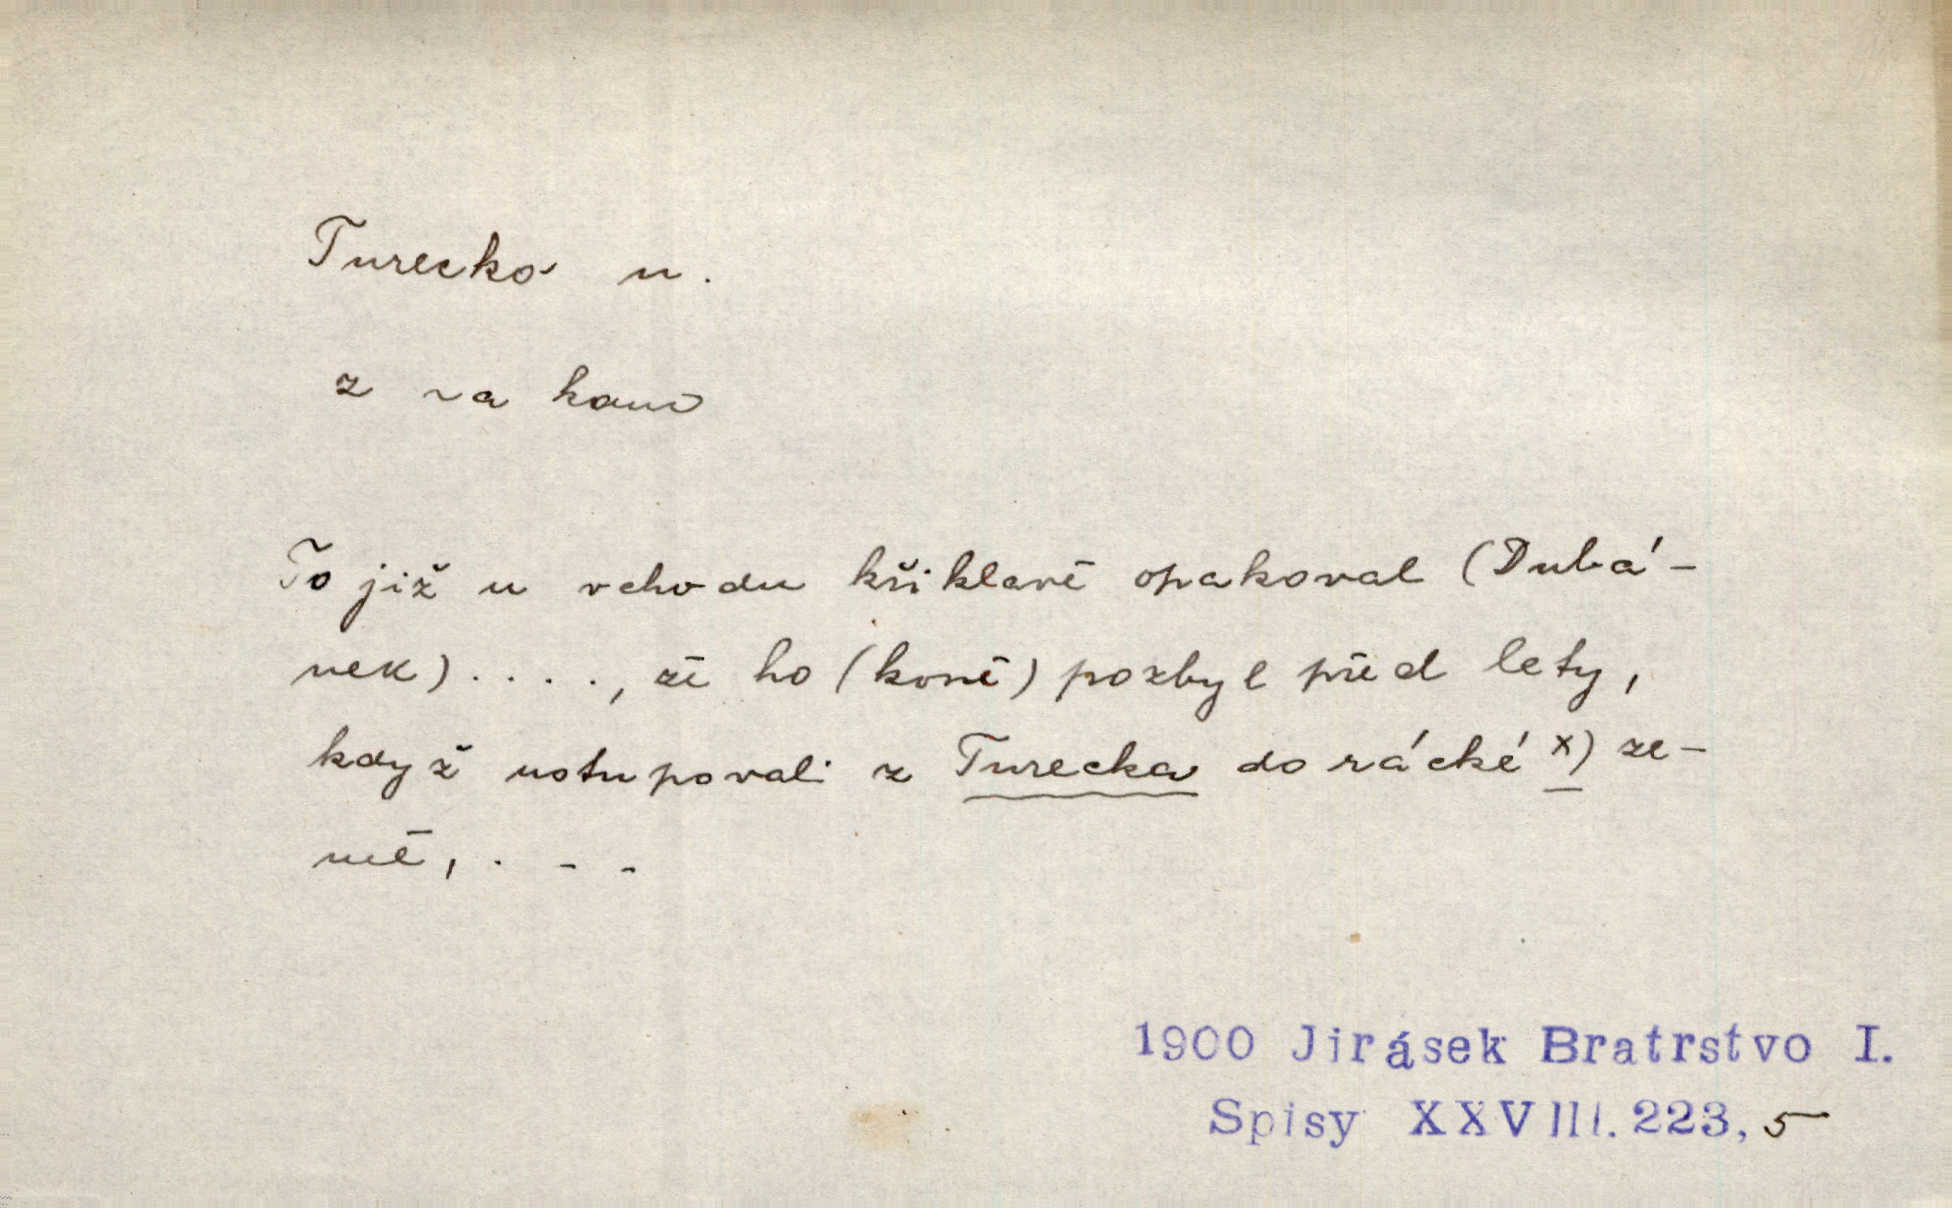 Turecko n.
z ~a kam
To již u vchodu křiklavě opakoval (Dubá-
nek) . . . ., že ho (koně) pozbyl před lety,
když ustupovali z Turecka do rácké x) ze-
mě, . - -
1900 Jirásek Bratrstvo I.
Spisy XXVIII. 223, 5